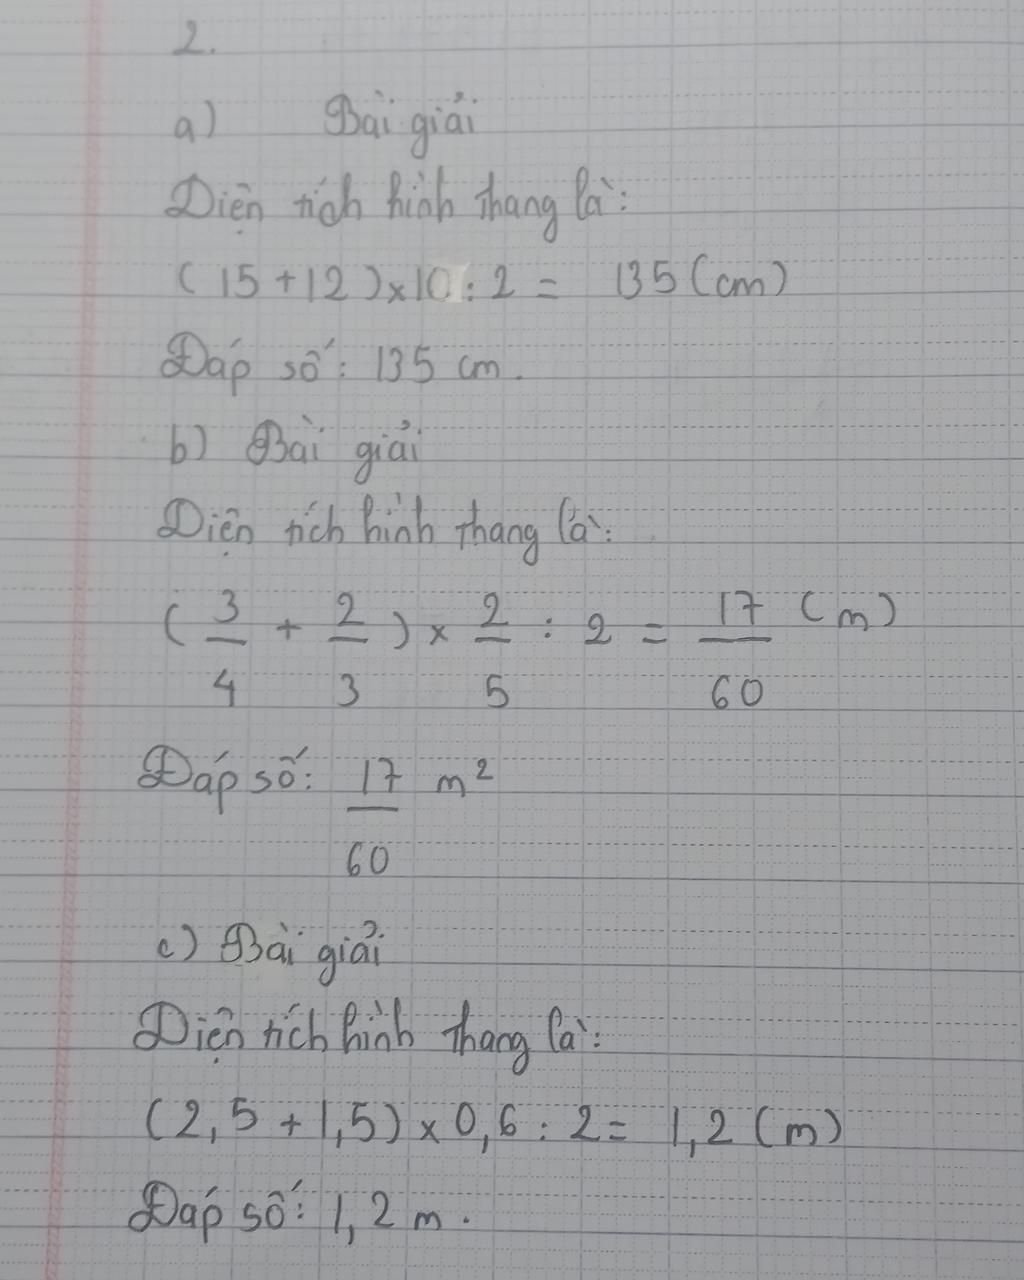 2.
a) Bài giải
Diện tích hình thang là:
(15+12)×10:2 = 135(cm)
Đáp số: 135 cm.
b) Bài giải
Diện tích hình thang là:
(3/4 + 2/3) × 2/5 : 2 = 17/60 (m)
Đáp số: 17/60 m²
c) Bài giải
Diện tích hình thang là:
(2,5+1,5)×0,6:2= 1,2(m)
Đáp số: 1,2 m.